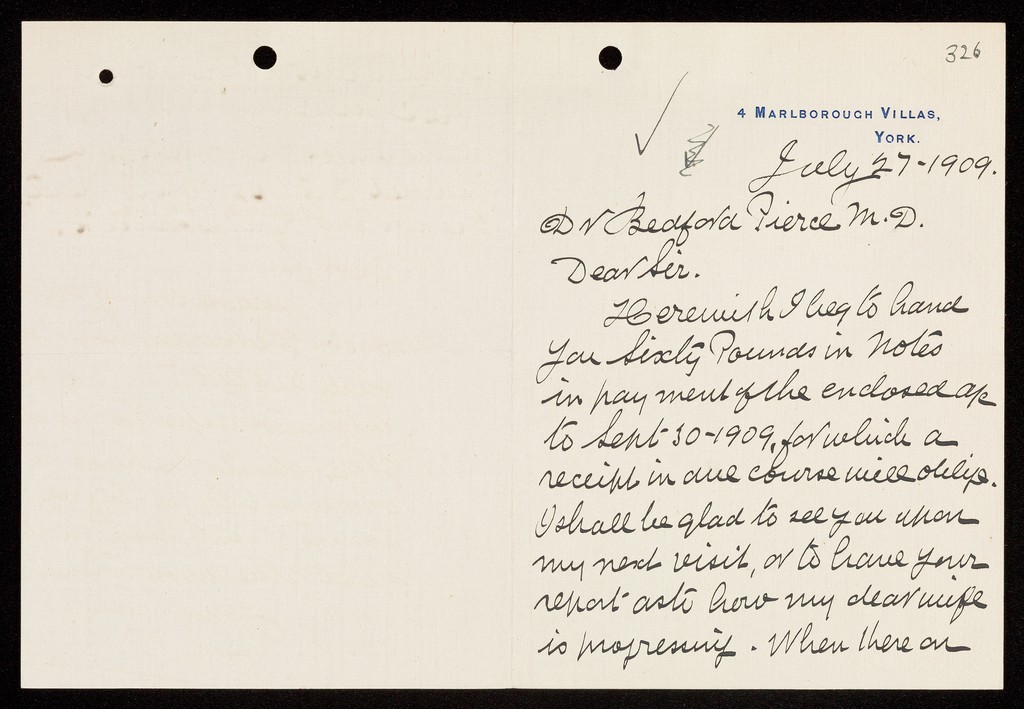 326
4 MARLBOROUGH VILLAS,
YORK.
July 27-1909.
Dr Bedford Pierce M.D.
Dear Sir.
Herewith I beg to hand
you Sixty Pounds in Notes
in payment of the enclosed a/c
to Sept 30-1909, for which a
receipt in due course will oblige.
I shall be glad to see you upon
my next visit, or to have your
report as to how my dear wife
is progressing. When there on